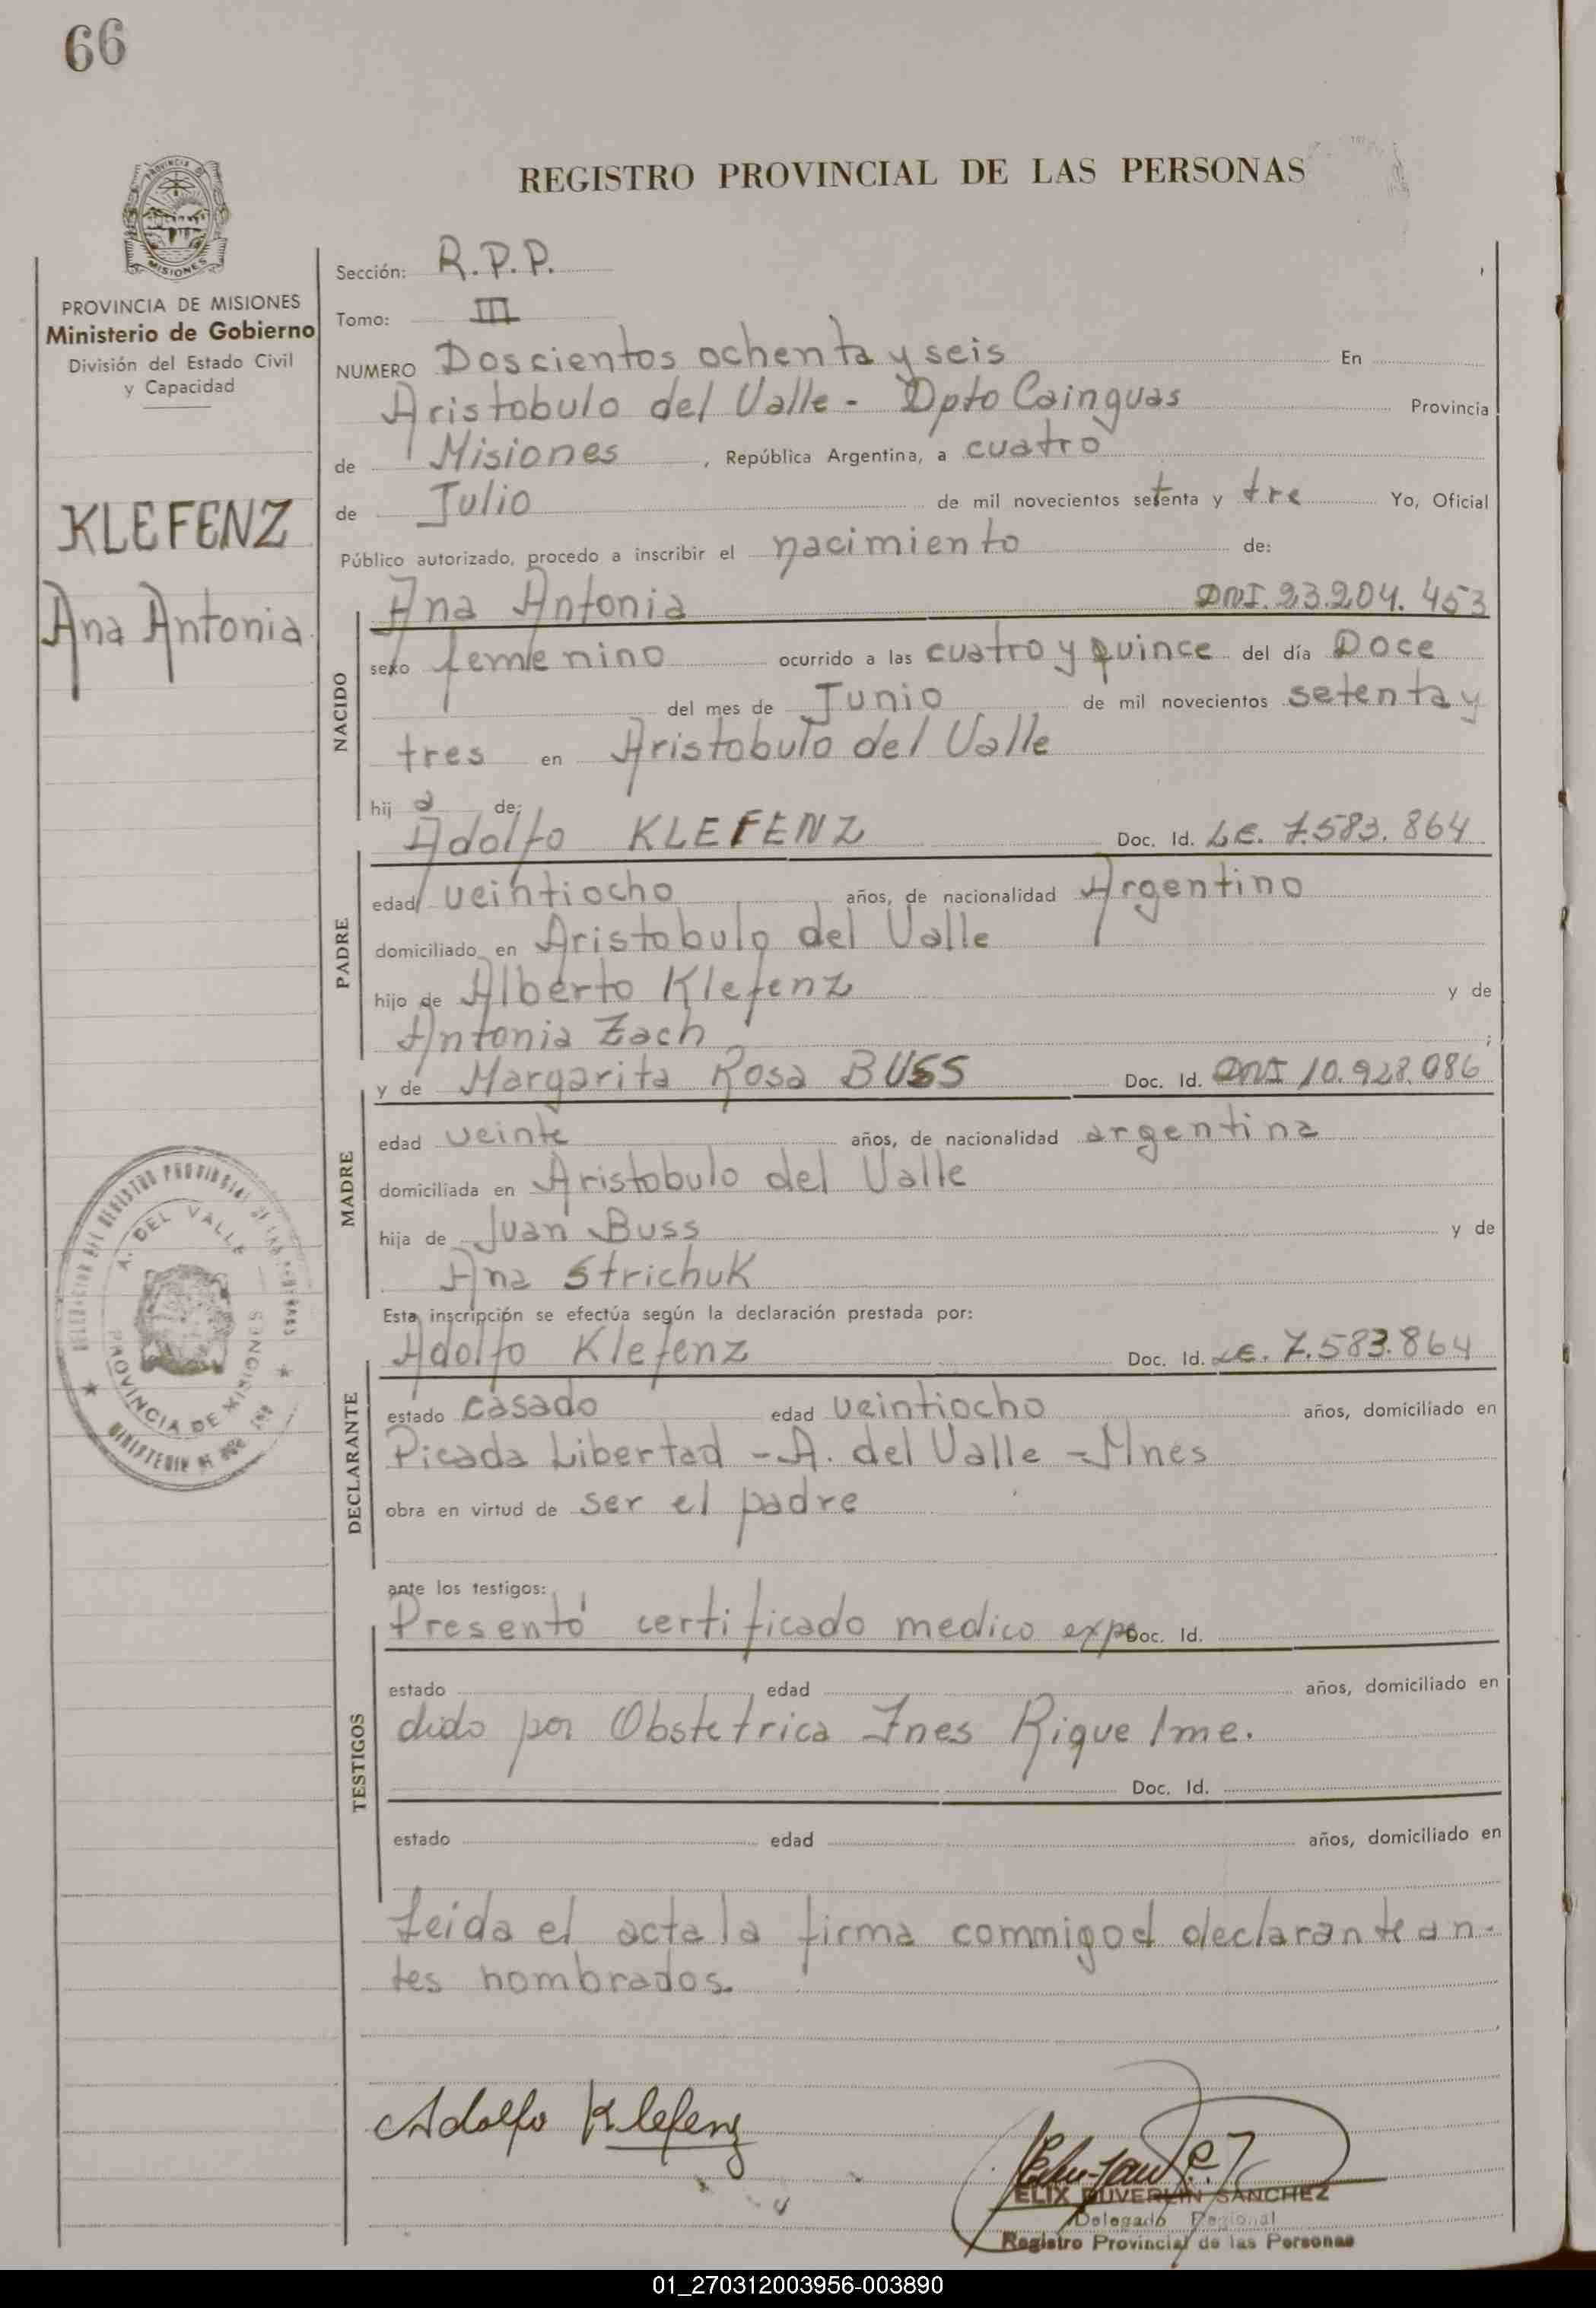 66
REGISTRO PROVINCIAL DE LAS PERSONAS
PROVINCIA
MISIONES
PROVINCIA DE MISIONES
Ministerio de Gobierno
División del Estado Civil
y Capacidad
KLEFENZ
Ana Antonia
Sección: R.P.P.
Tomo: III
NUMERO Doscientos ochenta y seis En
Aristobulo del Valle - Dpto Cainguas Provincia
de Misiones, República Argentina, a cuatro
de Julio de mil novecientos setenta y tre Yo, Oficial
Público autorizado, procedo a inscribir el nacimiento de:
NACIDO
Ana Antonia DNI. 23.204.453
sexo femenino ocurrido a las cuatro y quince del día Doce
del mes de Junio de mil novecientos setenta y
tres en Aristobulo del Valle
hij a de:
PADRE
Adolfo KLEFENZ Doc. Id. L.E. 7.583.864
edad veintiocho años, de nacionalidad Argentino
domiciliado en Aristobulo del Valle
hijo de Alberto Klefenz y de
Antonia Zach ;
MADRE
y de Margarita Rosa BUSS Doc. Id. DNI 10.928.086
edad veinte años, de nacionalidad argentina
domiciliada en Aristobulo del Valle
hija de Juan Buss y de
Ana Strichuk
Esta inscripción se efectúa según la declaración prestada por:
DECLARANTE
Adolfo Klefenz Doc. Id. L.E. 7.583.864
estado casado edad veintiocho años, domiciliado en
Picada Libertad - A. del Valle - Mnes
obra en virtud de ser el padre
ante los testigos:
TESTIGOS
Presentó certificado medico expe Doc. Id.
estado edad años, domiciliado en
dido por Obstetrica Ines Riquelme.
Doc. Id.
estado edad años, domiciliado en
Leida el acta la firma commigo el declarante an-
tes nombrados.
Adolfo Klefenz
ELIX DUVERLIN SANCHEZ
Delegado Regional
Registro Provincial de las Personas
DELEGACION DEL REGISTRO PROVINCIAL DE LAS PERSONAS
A. DEL VALLE
PROVINCIA DE MISIONES
MINISTERIO DE GOB
01_270312003956-003890